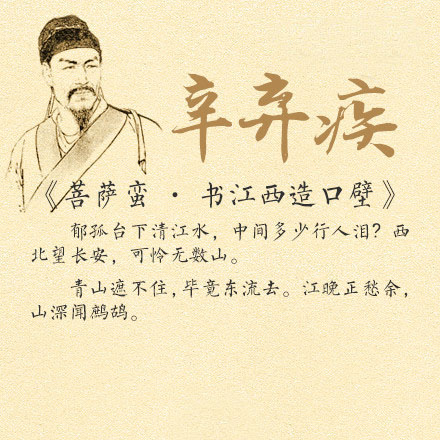 辛弃疾
《菩萨蛮 · 书江西造口壁》
郁孤台下清江水，中间多少行人泪？西
北望长安，可怜无数山。
青山遮不住，毕竟东流去。江晚正愁余，
山深闻鹧鸪。